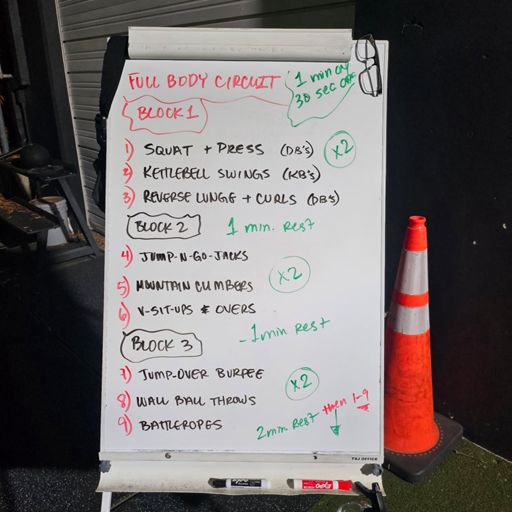 FULL BODY CIRCUIT
1 min on
30 sec off
BLOCK 1
1) SQUAT + PRESS (DB's) x2
2) KETTLEBELL SWINGS (KB's)
3) REVERSE LUNGE + CURLS (DB's)
BLOCK 2 1 min. Rest
4) JUMP-N-GO-JACKS
5) MOUNTAIN CLIMBERS x2
6) V-SIT-UPS & OVERS
- 1 min Rest
BLOCK 3
7) JUMP-OVER BURPEE x2
8) WALL BALL THROWS
2 min Rest then 1-9
9) BATTLEROPES
T&J OFFICE
EXPO